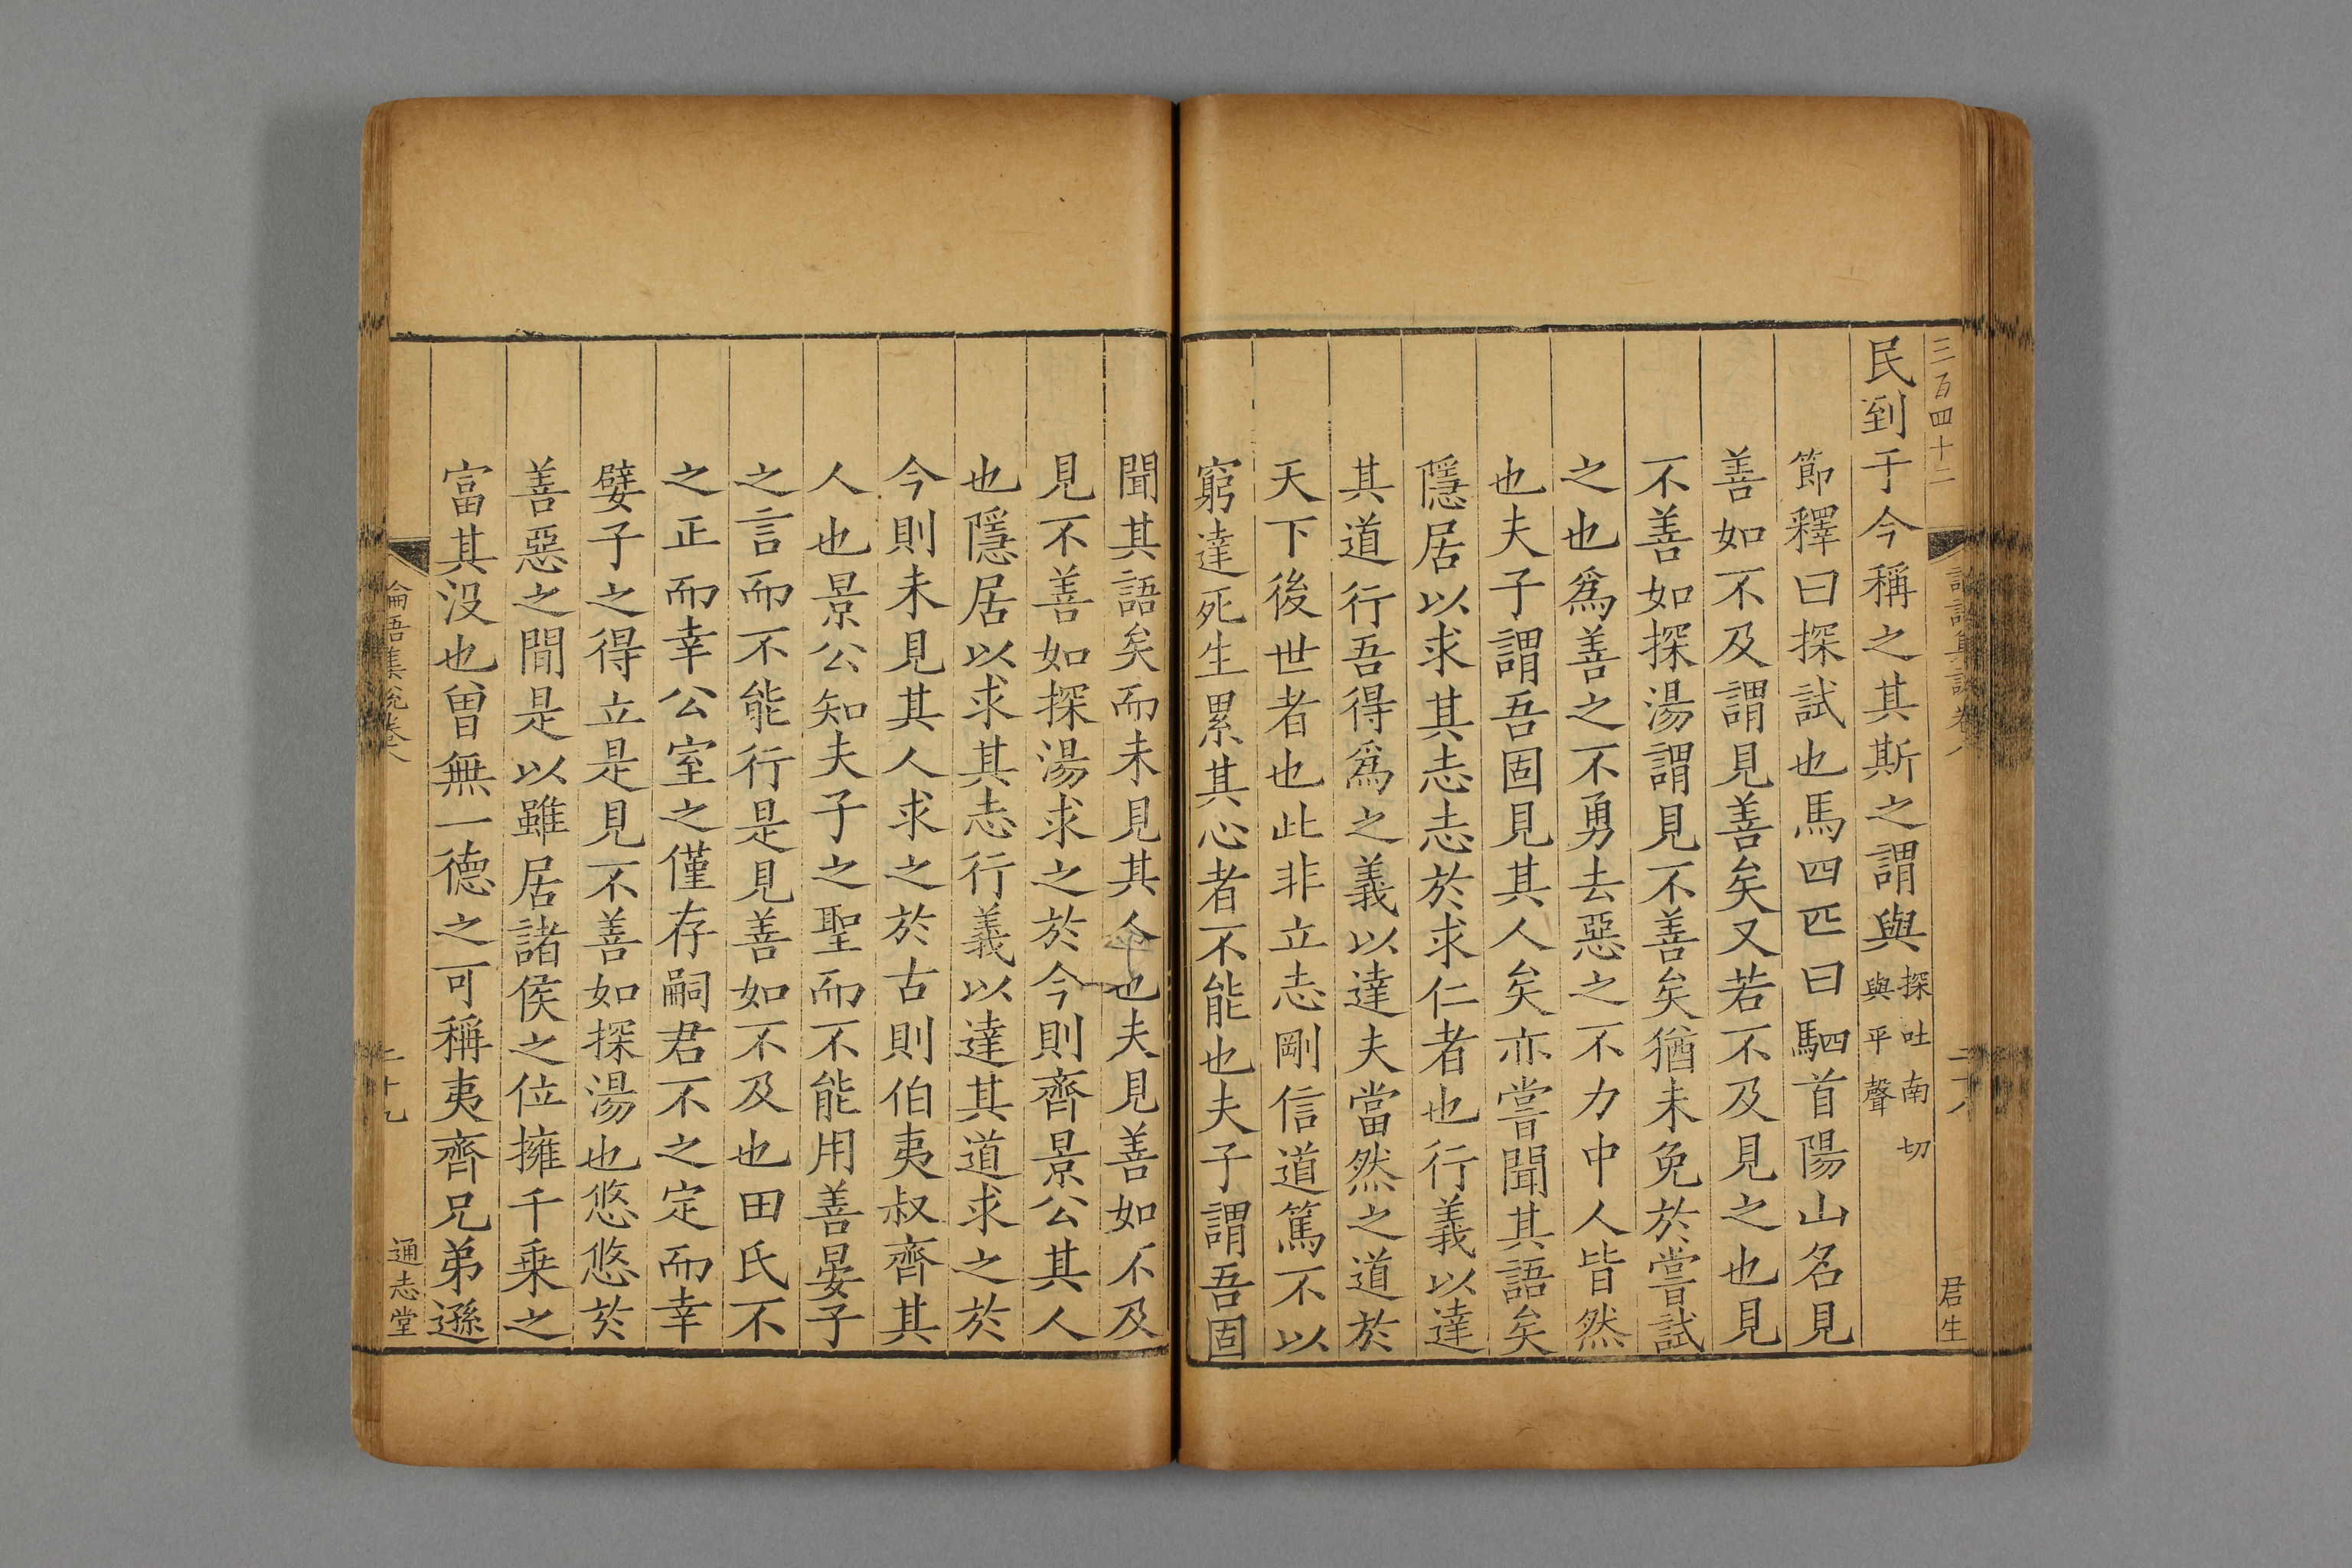 三百四十二
卷八
二十八
君生
民到于今稱之其斯之謂與探吐南切與平聲
節釋曰探試也馬四匹曰駟首陽山名見
善如不及謂見善矣又若不及見之也見
不善如探湯謂見不善矣猶未免於嘗試
之也爲善之不勇去惡之不力中人皆然
也夫子謂吾固見其人矣亦嘗聞其語矣
隱居以求其志志於求仁者也行義以達
其道行吾得爲之義以達夫當然之道於
天下後世者也此非立志剛信道篤不以
窮達死生累其心者不能也夫子謂吾固
聞其語矣而未見其人也夫見善如不及
見不善如探湯求之於今則齊景公其人
也隱居以求其志行義以達其道求之於
今則未見其人求之於古則伯夷叔齊其
人也景公知夫子之聖而不能用善晏子
之言而不能行是見善如不及也田氏不
之正而幸公室之僅存嗣君不之定而幸
嬖子之得立是見不善如探湯也悠悠於
善惡之間是以雖居諸侯之位擁千乗之
富其没也曽無一德之可稱夷齊兄弟遜
論語集說卷八
二十九
通志堂